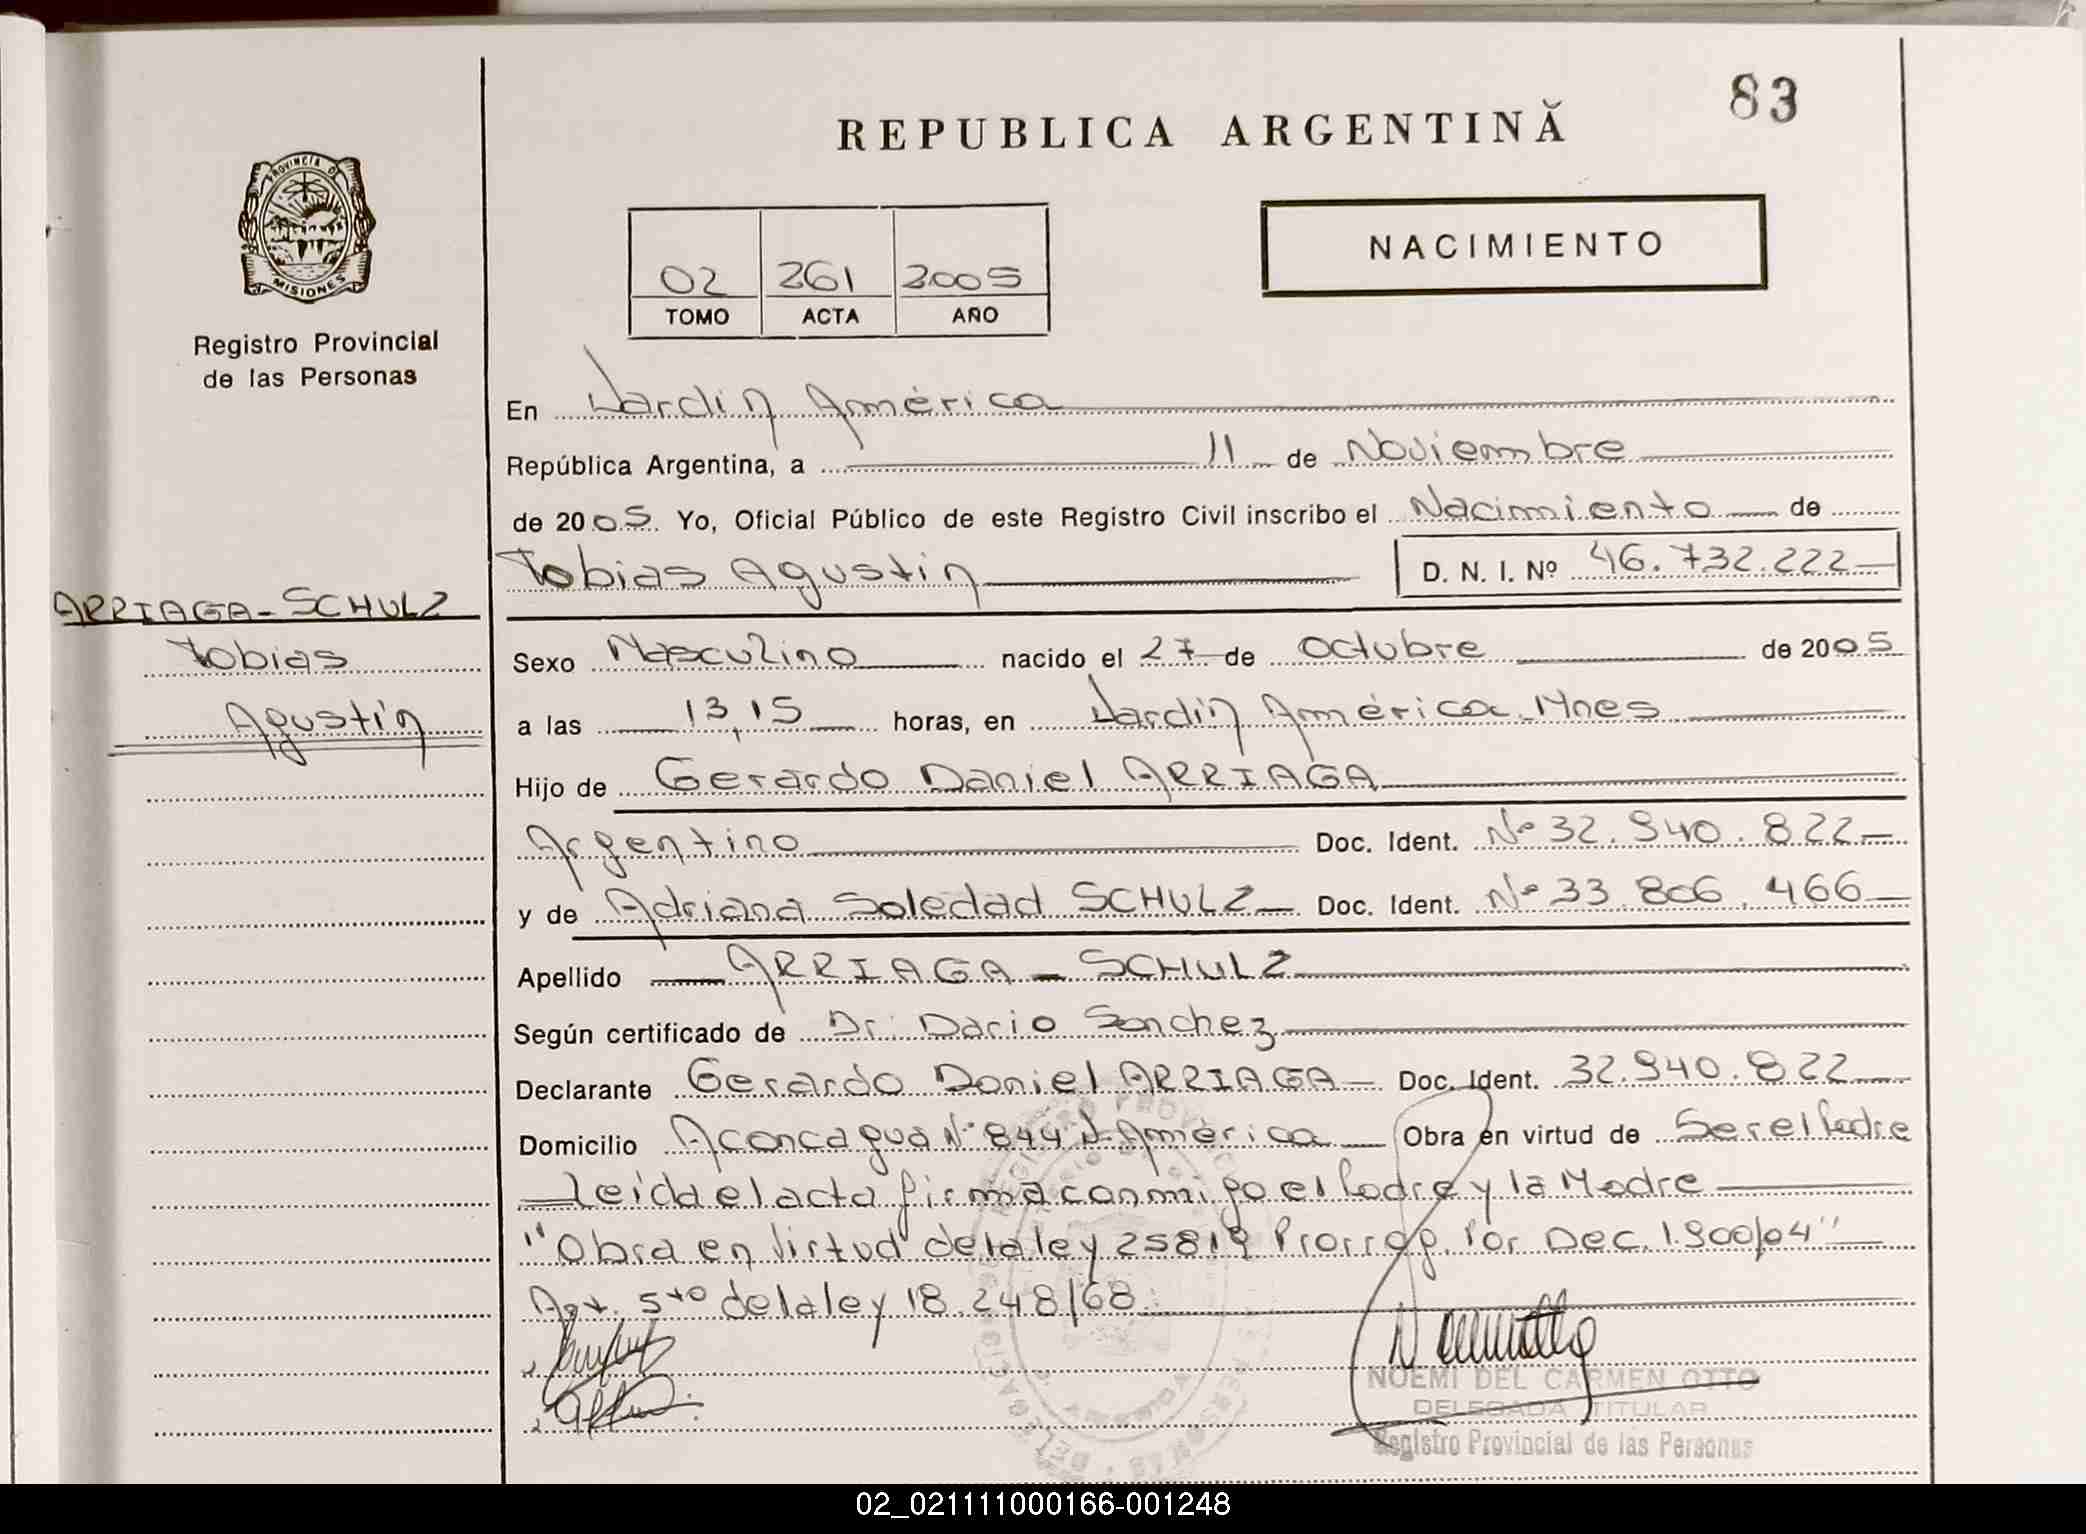 83
REPUBLICA ARGENTINA
PROVINCIA DE
MISIONES
Registro Provincial
de las Personas
02 261 2005
TOMO ACTA AÑO
NACIMIENTO
En Jardín América
República Argentina, a 11 de Noviembre
de 2005 Yo, Oficial Público de este Registro Civil inscribo el Nacimiento de
Tobias Agustín D. N. I. Nº 46.732.222
ARRIAGA-SCHULZ
Tobias
Agustín
Sexo Masculino nacido el 27 de Octubre de 2005
a las 13,15 horas, en Jardín América Mnes
Hijo de Gerardo Daniel ARRIAGA
Argentino Doc. Ident. Nº 32.940.822
y de Adriana Soledad SCHULZ Doc. Ident. Nº 33.806.466
Apellido ARRIAGA - SCHULZ
Según certificado de Dr. Dario Sanchez
Declarante Gerardo Daniel ARRIAGA Doc. Ident. 32.940.822
Domicilio Aconcagua Nº 844 J. América Obra en virtud de Ser el Padre
Leída el acta firma conmigo el Padre y la Madre
"Obra en Virtud de la ley 25819 Prorrog. Por Dec. 1.900/04"
Art. 5to de la ley 18.248/68
NOEMI DEL CARMEN OTTO
DELEGADA TITULAR
Registro Provincial de las Personas
02_021111000166-001248